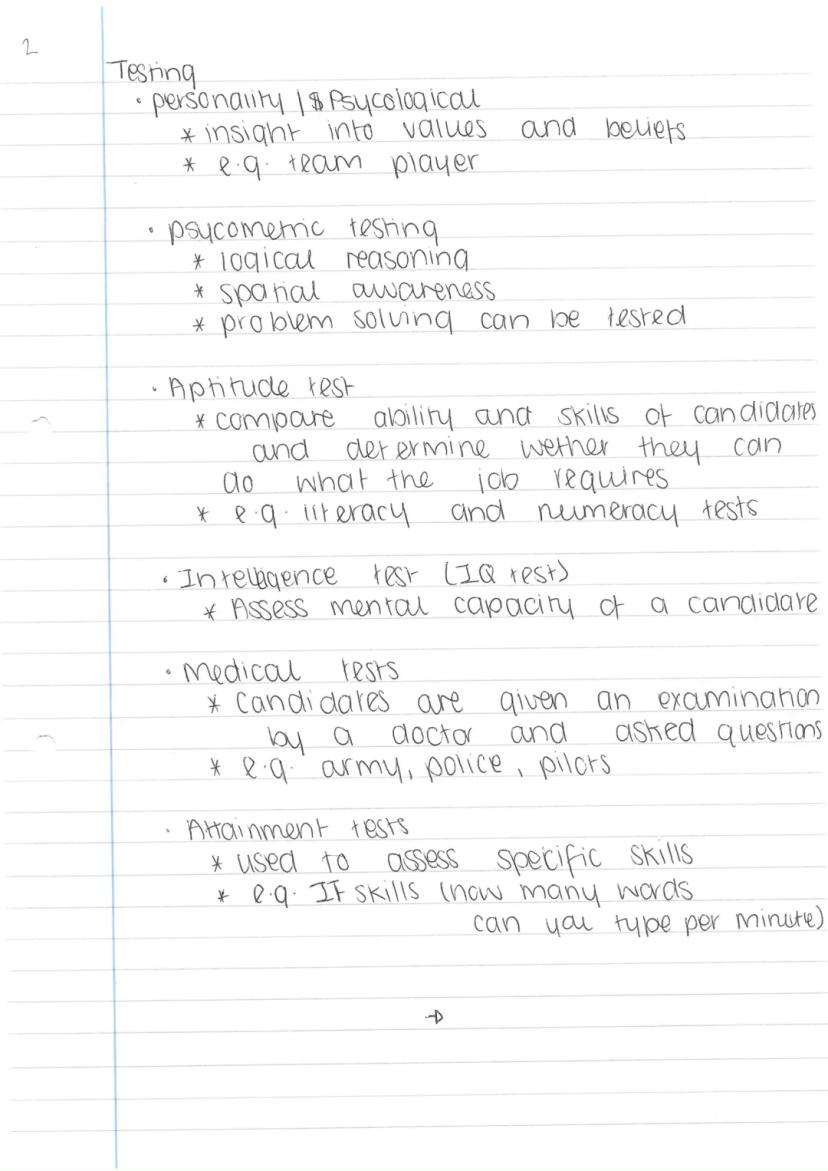 2
Testing
• personality / Psycological
* insight into values and beliefs
* e.g. team player
• psycometric testing
* logical reasoning
* spatial awareness
* problem solving can be tested
• Aptitude test
* compare ability and skills of candidates
and determine wether they can
do what the job requires
* e.g. literacy and numeracy tests
• Intelligence test (IQ test)
* Assess mental capacity of a candidate
• Medical tests
* candidates are given an examination
by a doctor and asked questions
* e.g. army, police, pilots
• Attainment tests
* used to assess specific skills
* e.g. IT skills (how many words
can you type per minute)
→